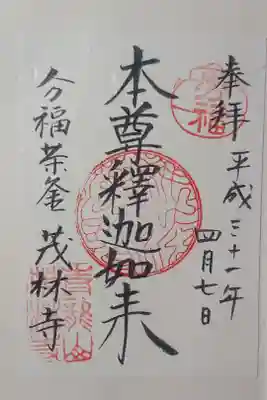 奉拜 平成三十一年
四月七日
本尊釋迦如来
分福茶釜 茂林寺